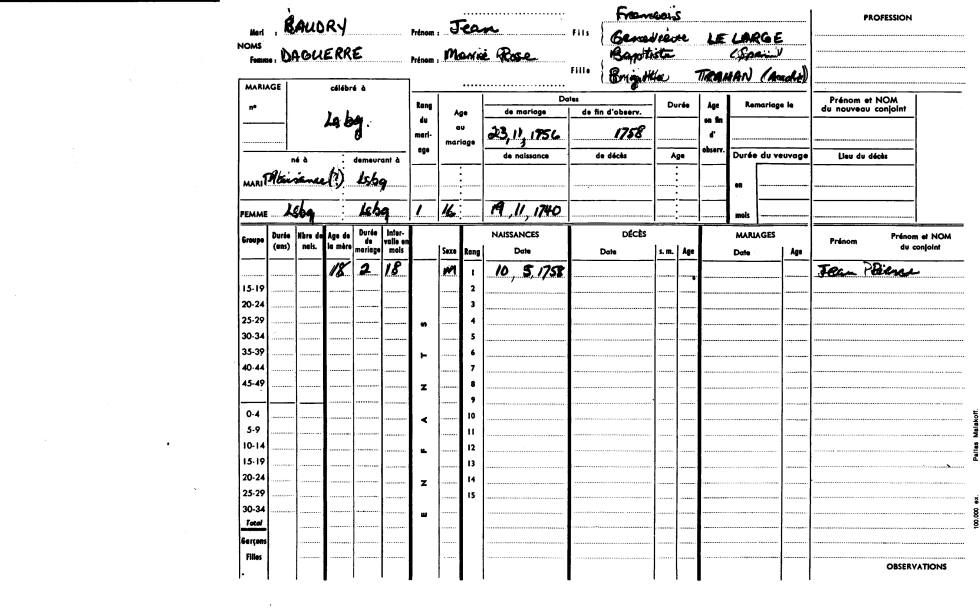 François
PROFESSION
Mari : BAUDRY Prénom : Jean Fils Geneviève LE LARGE
NOMS
Femme : DAGUERRE Prénom : Marie Rose Baptista (Spain)
Fille Brigitte TRAHAN (Acadie)
MARIAGE célébré à
n° Lsbg.
Rang du mariage Age au mariage Dates Durée Age en fin d' observ. Remariage le Prénom et NOM du nouveau conjoint
de mariage de fin d'observ.
23, 11, 1756 1758
né à demeurant à de naissance de décès Age Durée du veuvage Lieu du décès
MARI Plaisance (?) Lsbg en
FEMME Lsbg Lsbg 1 16 19, 11, 1740 mois
Groupe Durée (ans) Nbre de nais. Age de la mère Durée de mariage Intervalle en mois Sexe Rang NAISSANCES Date DÉCÈS Date s. m. Age MARIAGES Date Age Prénom Prénom et NOM du conjoint
18 2 18 M 1 10, 5, 1758 Jean Pierre
15-19 2
20-24 3
25-29 4
30-34 5
35-39 6
40-44 7
45-49 8
9
0-4 10
5-9 11
10-14 12
15-19 13
20-24 14
25-29 15
30-34
Total
Garçons
Filles
E N F A N T S
OBSERVATIONS
100.000 ex. Pallas Malakoff.